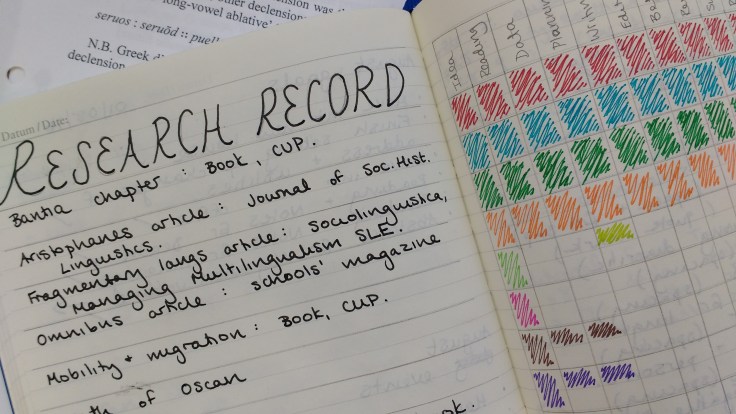 nsion was the
other declension
long-vowel ablative'
seruos : seruōd :: puel
N.B. Greek d
declension
Datum / Date:
RESEARCH RECORD
Bantia chapter : Book, CUP.
Aristophanes article : Journal of Soc. Hist.
Linguistics.
Fragmentary langs article : sociolinguistica,
Managing Multilingualism SLE.
Omnibus article : schools' magazine
Mobility + migration : Book, CUP.
th of Oscan
ok.
Idea
Reading
Data
Planning
Writing
Edit